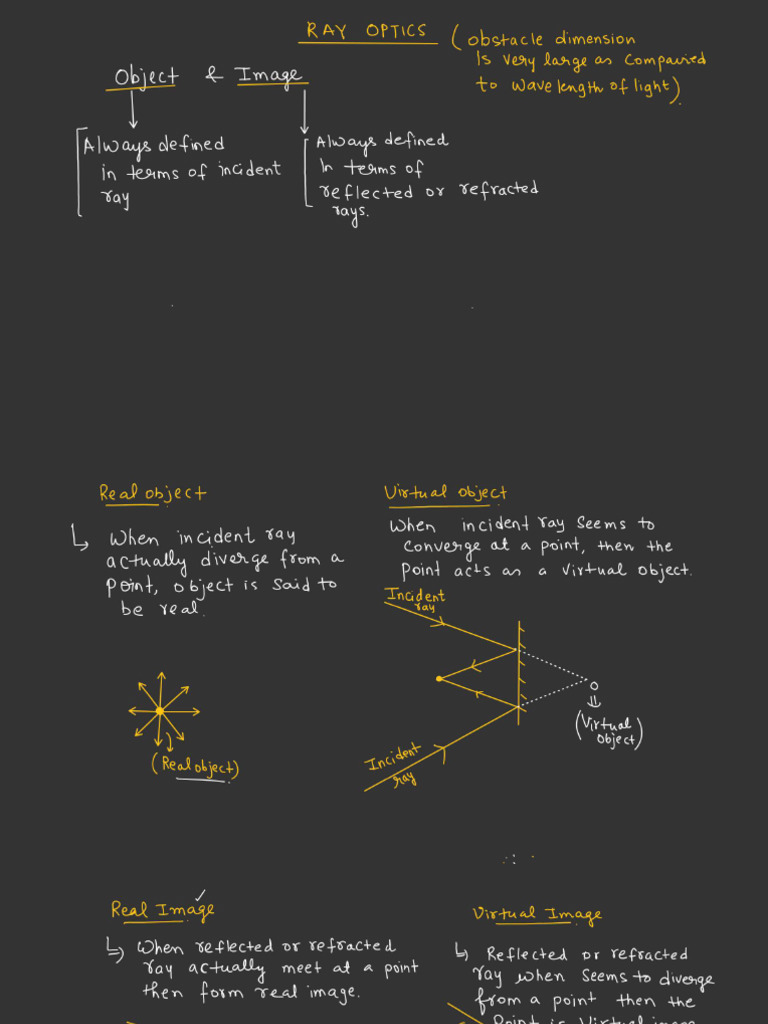 RAY OPTICS (obstacle dimension
Is very large as compaired
to wave length of light).
Object & Image
Always defined
in terms of incident
ray
Always defined
In terms of
reflected or refracted
rays.
Real object
When incident ray
actually diverge from a
point, object is said to
be real.
(Real object)
Virtual object
When incident ray seems to
converge at a point, then the
point acts as a virtual object.
Incident
ray
O
(Virtual
object)
Incident
ray
Real Image
When reflected or refracted
ray actually meet at a point
then form real image.
Virtual Image
Reflected or refracted
ray when seems to diverge
from a point then the
Point is Virtual image